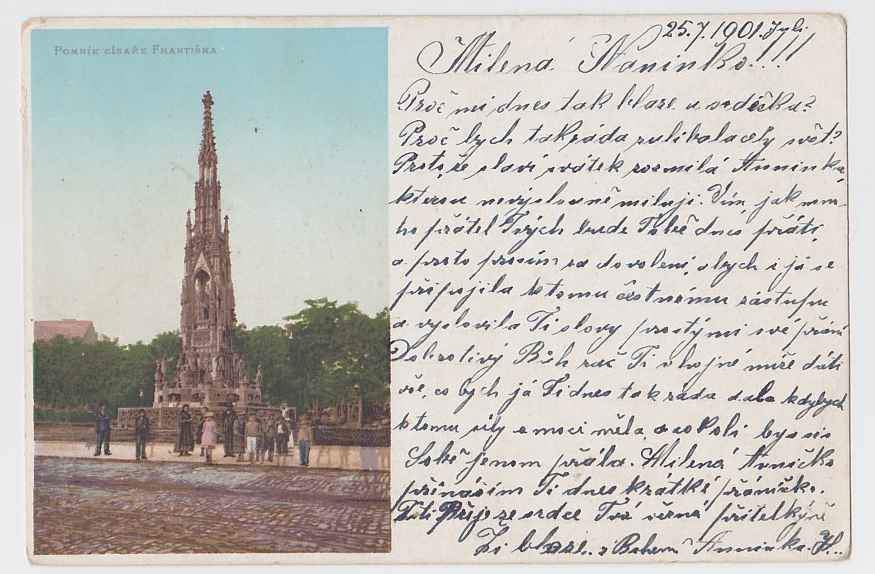 POMNÍK CÍSAŘE FRANTIŠKA
25.7.1901.
Milená Naninko!!!
Proč mi dnes tak blaze u srdéčka?
Proč bych tak ráda zulíbala celý svět?
Protože slaví svátek rozmilá Anninka,
kterou nevýslovně miluji. Vím jak mno-
ho přátel Tvých bude Tobě dnes přáti,
a proto prosím za dovolení, abych i já se
připojila k tomu čestnému zástupu
a vyslovila Ti slovy prostými své přání
Dobrotivý Bůh rač Ti v hojné míře dáti
vše, co bych já Ti dnes tak ráda dala kdybych
k tomu síly a moci měla, a cokoli bys sis
Sobě jenom přála. Milená Aničko
přináším Ti dnes krátké přáníčko.
Ti Přeje ze srdce Tvá věrná přítelkyně
Zi blaze. s Bohem Anninka. H..